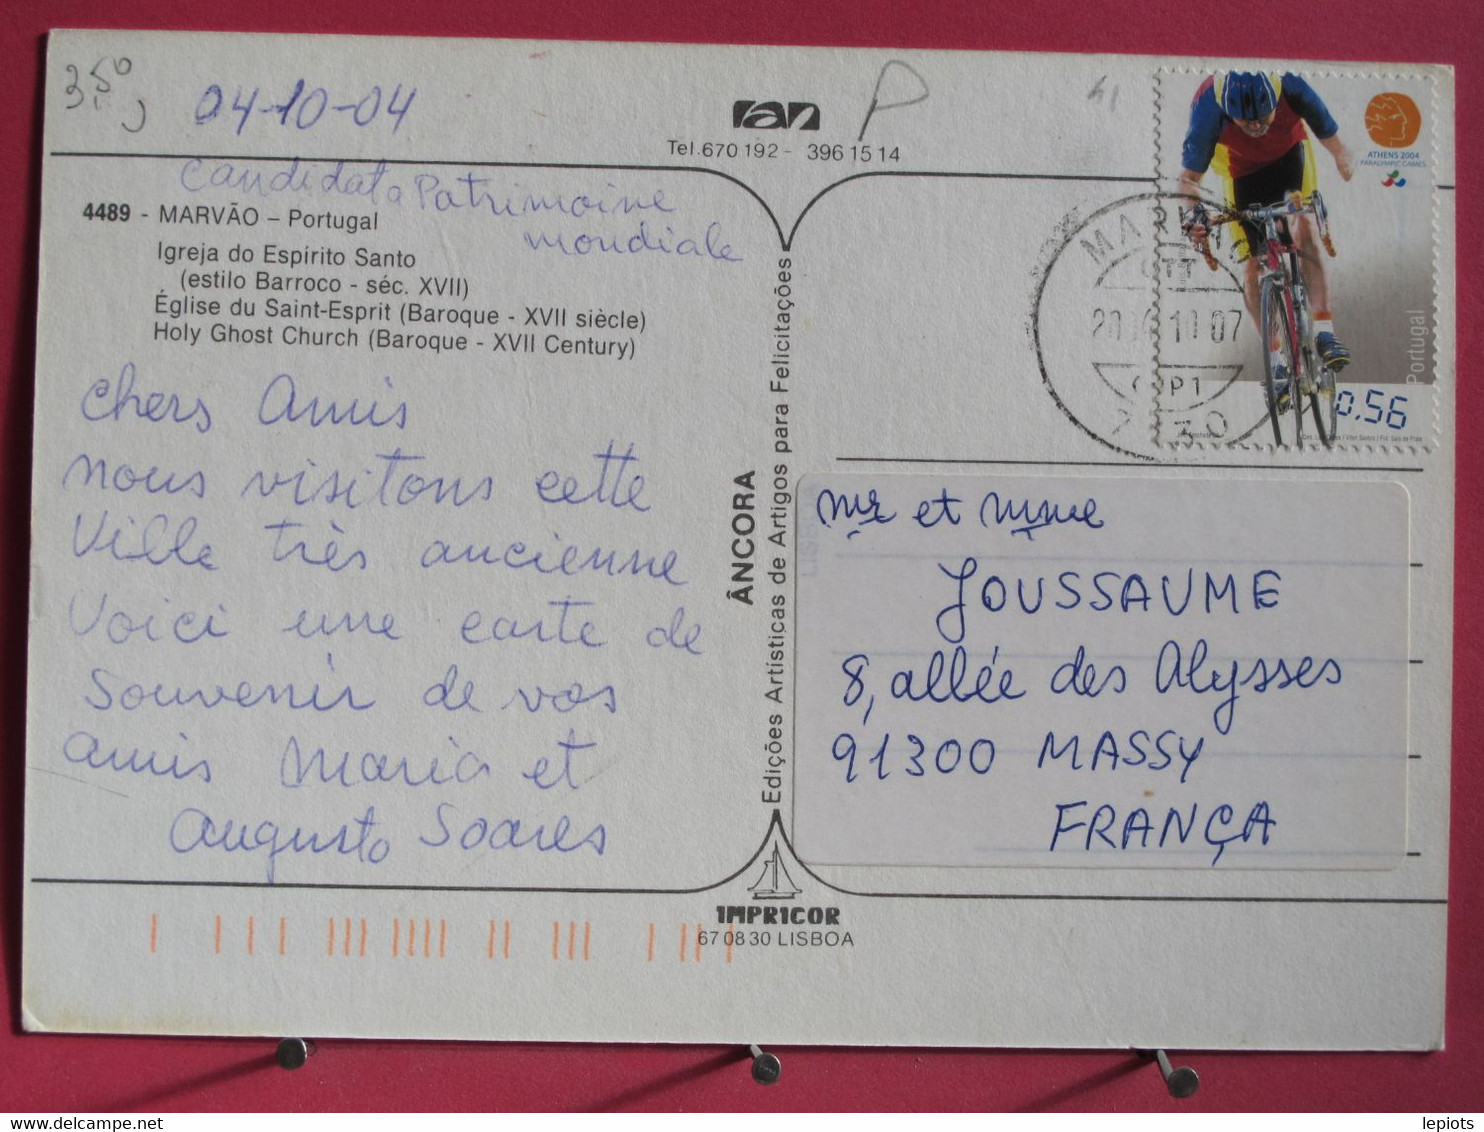 350
04-10-04
ran
Tel. 670 192 - 396 15 14
P
candidat a Patrimoine
mondiale
4489 - MARVÃO – Portugal
Igreja do Espírito Santo
(estilo Barroco - séc. XVII)
Église du Saint-Esprit (Baroque - XVII siècle)
Holy Ghost Church (Baroque - XVII Century)
Chers Amis
nous visitons cette
Ville très ancienne
Voici une carte de
Souvenir de vos
amis Maria et
Augusto Soares
ÂNCORA
Edições Artísticas de Artigos para Felicitações
IMPRICOR
67 08 30 LISBOA
ATHENS 2004
PARALYMPIC GAMES
Portugal
0,56
MARVÃO
CTT
10 07
mr et mme
JOUSSAUME
8, allée des Alysses
91300 MASSY
FRANÇA
lepiots